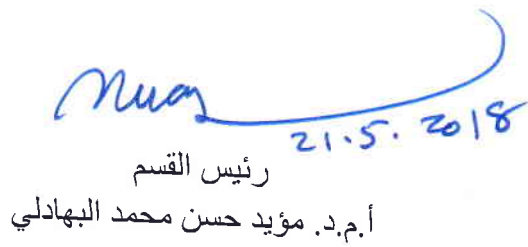 21.5.2018
رئيس القسم
أ.م.د. مؤيد حسن محمد البهادلي